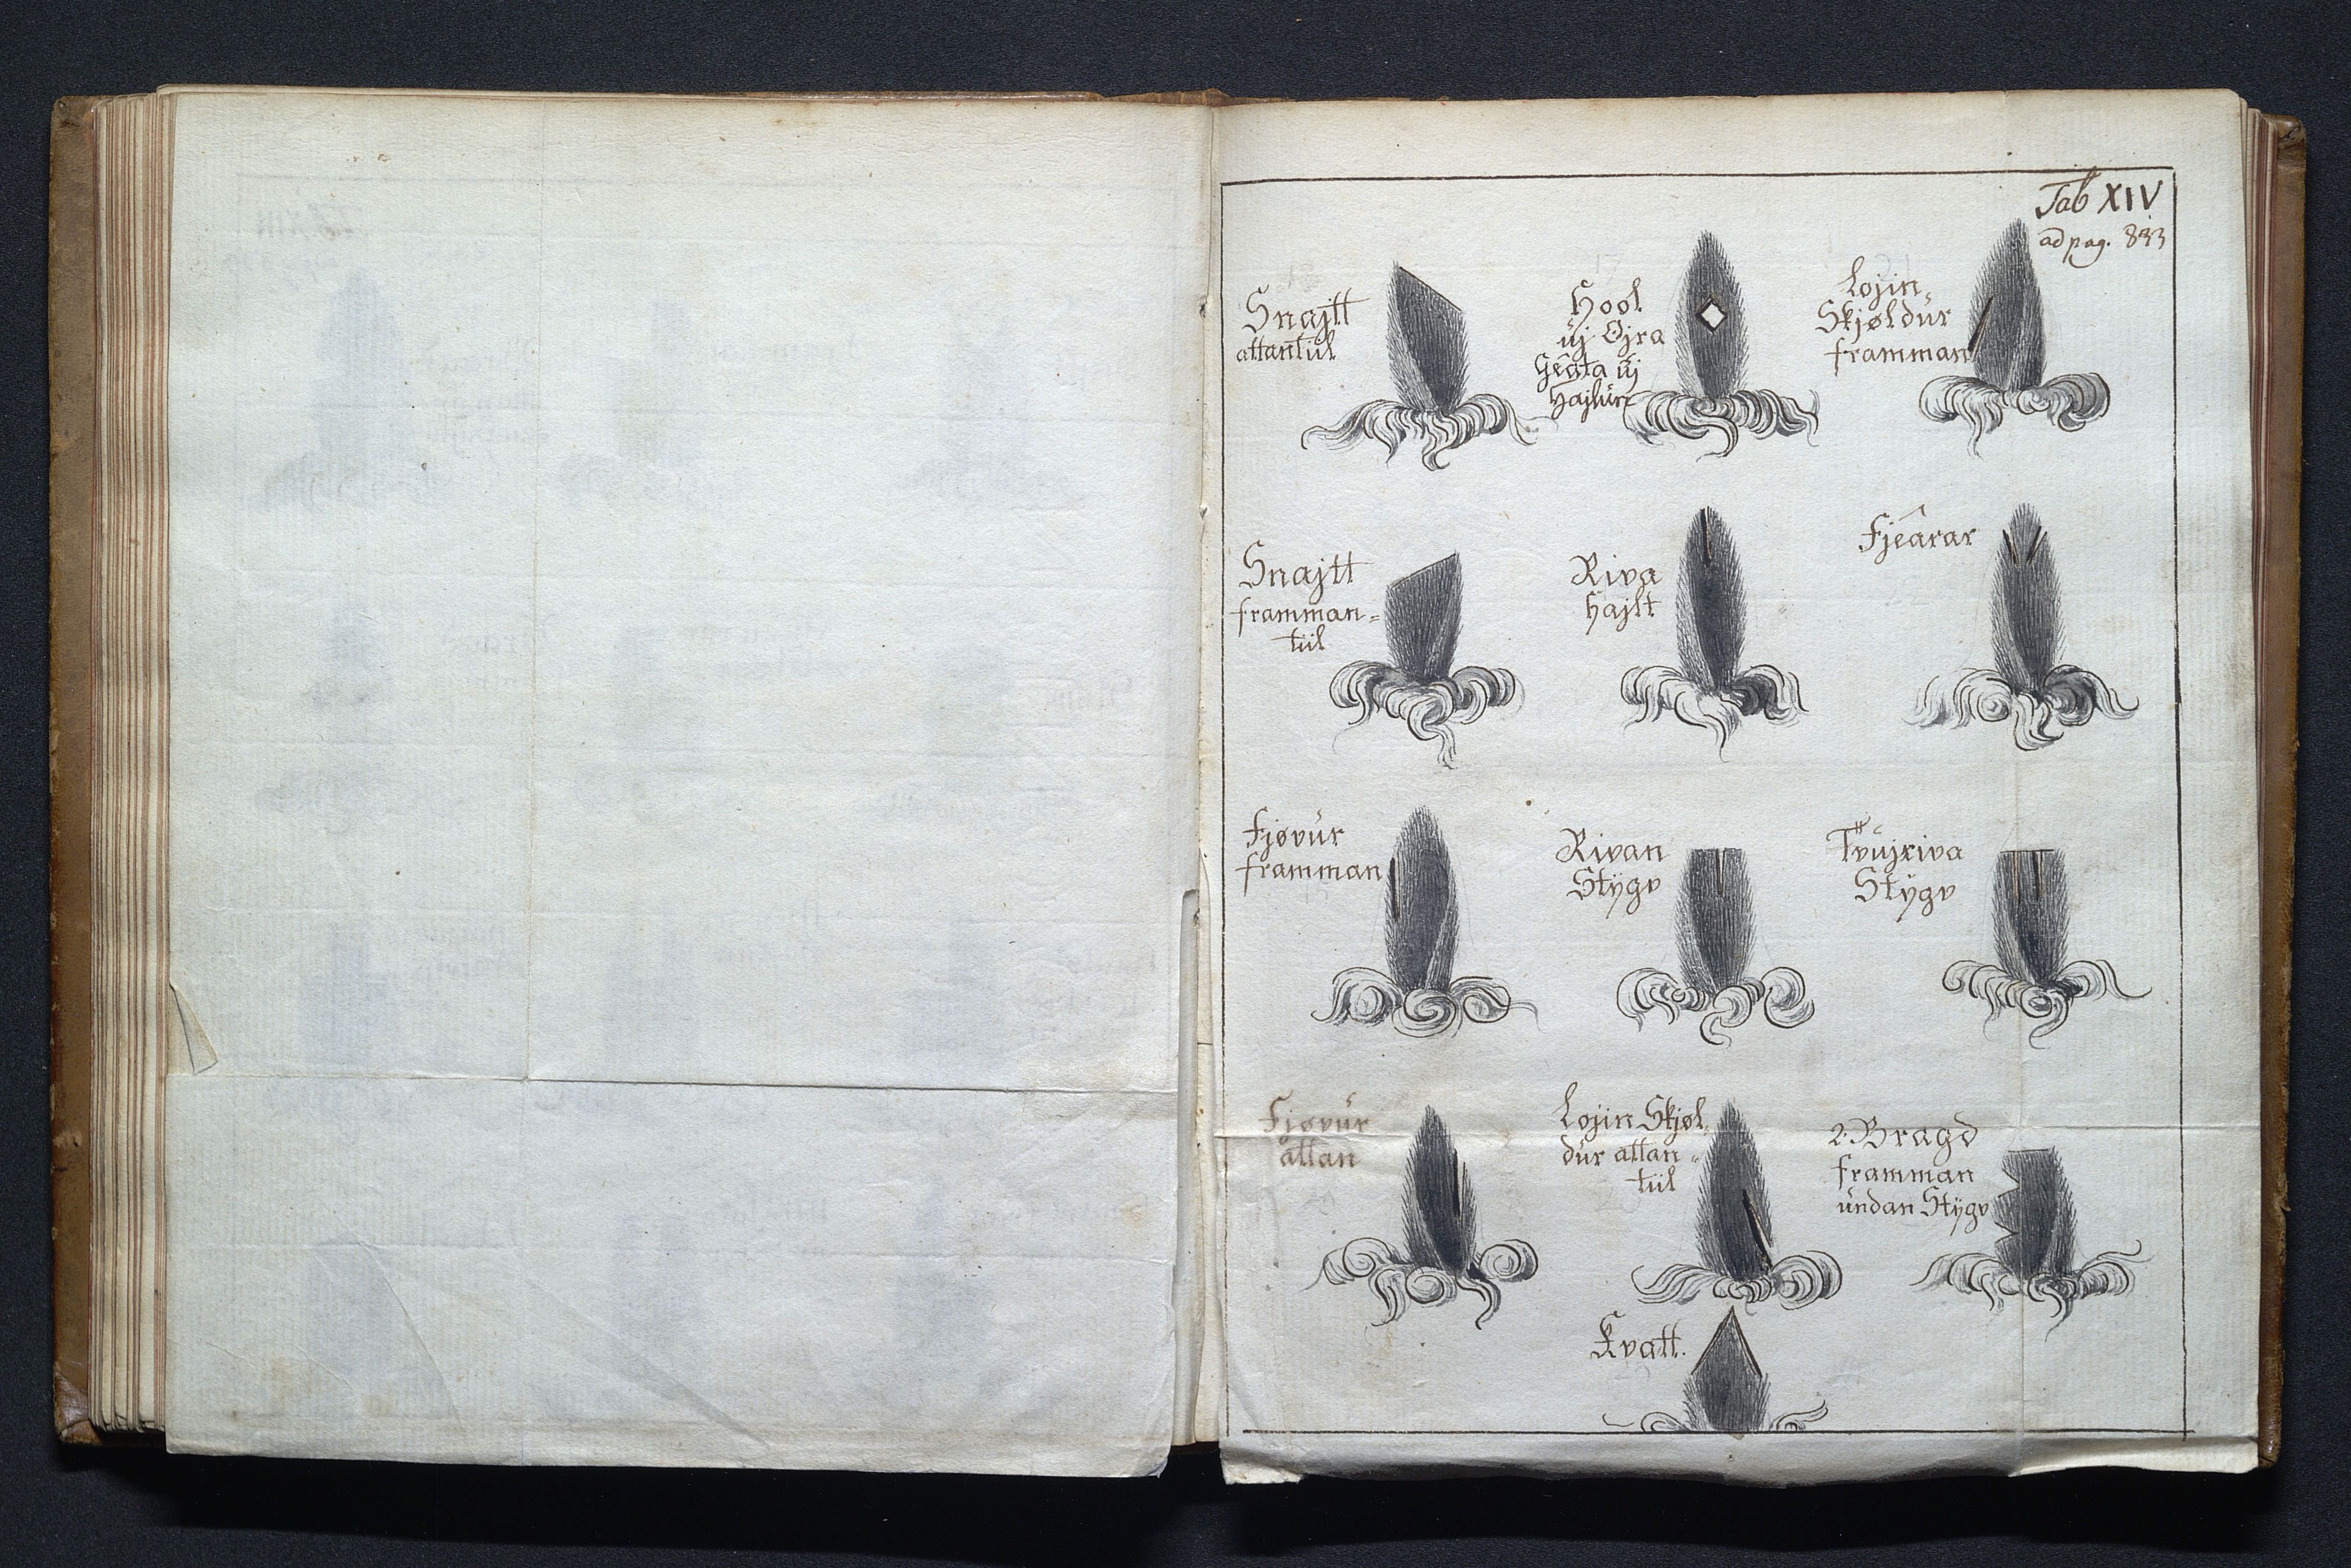 Tab XIV
ad pag. 833
Snajtt
attantül
Hool
üj Øjra
Gēata üj
Hajlün
Lojin-
Skjøldür
framman
Snajtt
framman=
tül
Riva
hajlt
Fjēarar
Fjøvür
framman
Rivan
Stÿgv
Tvüjriva
Stÿgv
Fjøvür
attan
Lojin Skjøl-
dür attan=
tül
2. Bragd
framman
ündan Stÿgv
Kvatt.